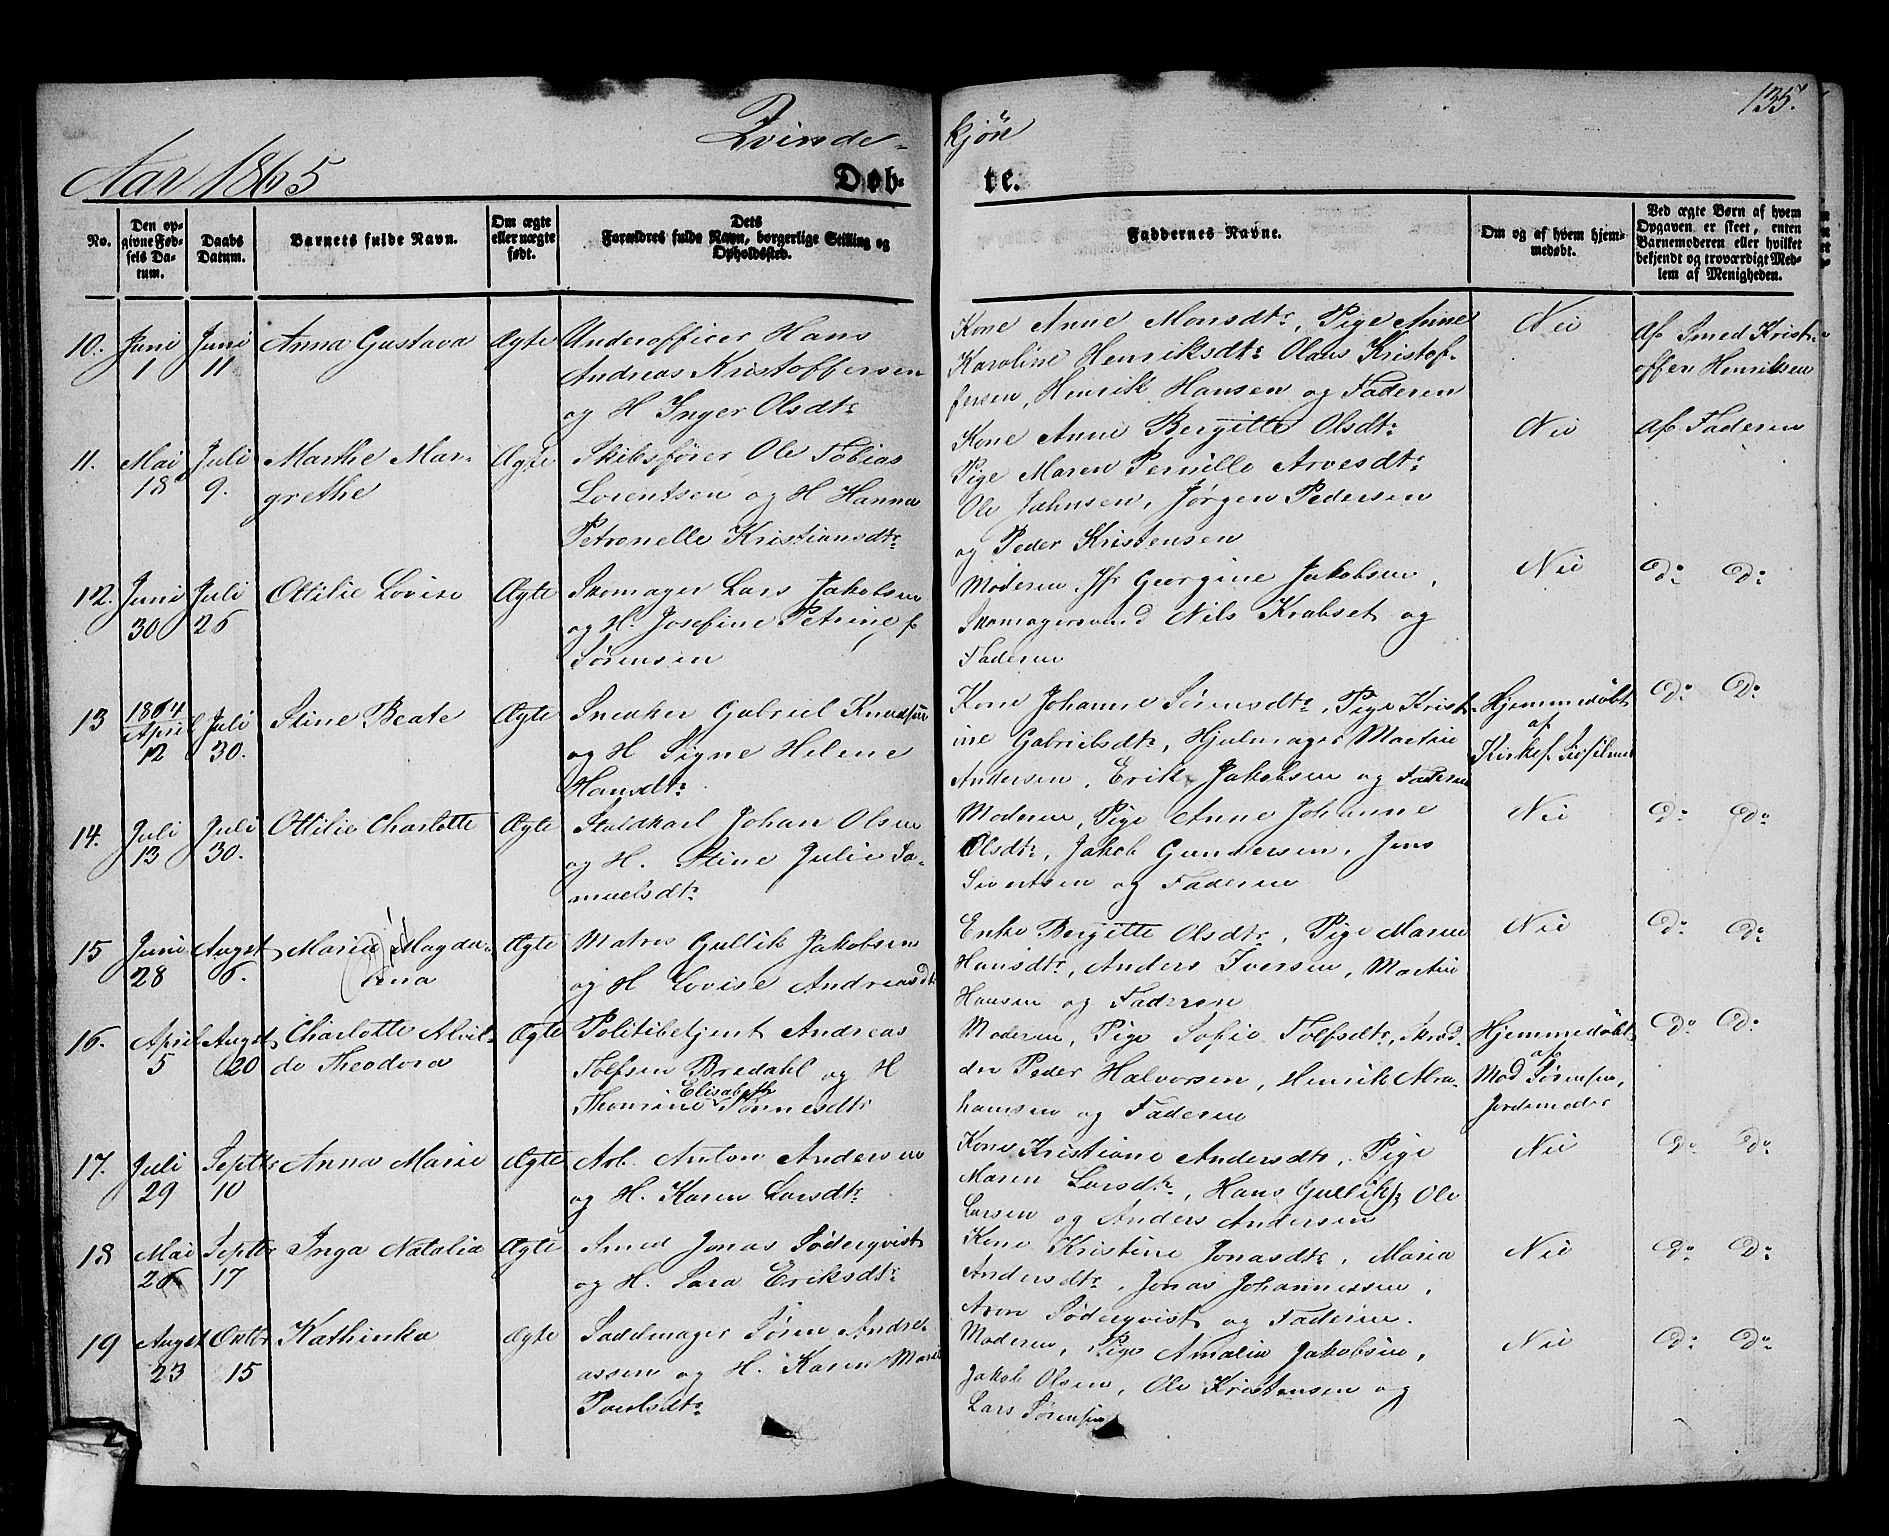 135.
Qvinde-kjön
Aar 1865
Døb-te.
No.
Den opgivne Fødsels Datum.
Daabs Datum.
Barnets fulde Navn.
Om ægte eller uægte født.
Dets Forældres fulde Navn, borgerlige Stilling og Opholdssted.
Faddernes Navne.
Om og af hvem hjemmedøbt.
Ved ægte Børn af hvem Opgaven er skeet, enten Barnemoderen eller hvilket bekjendt og troværdigt Medlem af Menigheden.
10. Juni 1 Juni 11 Anna Gustava Ægte Underofficer Hans
Andreas Kristoffersen
og H Inger Olsdtr
Kone Anne Monsdtr, Pige Anne
Karoline Henriksdtr Olaus Kristof-
fersen, Henrik Hansen og Faderen
Nei
af Smed Krist-
offer Henriksen
11. Mai 18 Juli 9. Marthe Mar-
grethe
Ægte
Skibsfører Ole Tobias
Lorentsen og H Hanna
Petronelle Kristiansdtr
Kone Anne Bergitte Olsdtr
Pige Maren Pernille Arvesdtr
Ole Jahnsen, Jörgen Pedersen
og Peder Kristensen
Nei
af Faderen
12. Juni 30 Juli 26 Ottilie Lovise Ægte Skomager Lars Jakobsen
og H. Josefine Petrine f
Sörensen
Moderen, Jfr Georgine Jakobsen,
Skomagersvend Nils Krabset og
Faderen
Nei
do do
13 1864 April 12 Juli 30. Stine Beate Ægte Sneker Gabriel Knudsen
og H Signe Helene
Hansdtr
Kone Johanne Sörensdtr, Pige Krist-
ine Gabrielsdtr, Hjulmager Martin
Andersen, Erik Jakobsen og Faderen
Hjemmedöbt
af
Kirkes.
do do
14. Juli 13 Juli 30. Ottilie Charlotte Ægte Staldkarl Johan Olsen
og H. Stine Julie Sa-
muelsdtr
Moderen, Pige Anne Johanne
Olsdtr, Jakob Gundersen, Jens
Sivertsen og Faderen
Nei
do do
15 Juni 28 Augst 6. Maria Magda-
lena
Ægte
Matros Gullik Jakobsen
og H Lovise Andreasdtr
Enke Bergitte Olsdtr, Pige Maren
Hansdtr, Anders Iversen, Martin
Hansen og Faderen
Nei
do do
16. April 5 Augst 20 Charlotte Alvil-
de Theodora
Ægte
Politibetjent Andreas
Tolfsen Bredahl og H
Thomine Elisabeth Tönnesdtr
Moderen, Pige Sofie Tolfsdtr, Skræd-
der Peder Halvorsen, Henrik Abra-
hamsen og Faderen
Hjemmedöbt
af
Mad Sörensen,
Jordemoder
do do
17. Juli 29 Septbr 10 Anna Marie Ægte Arb. Anton Andersen
og H. Karen Larsdtr
Kone Kristiane Andersdtr, Pige
Maren Larsdtr, Hans Gulliks. Ole
Larsen og Anders Andersen
Nei
do do
18 Mai 26 Septbr 17 Inga Natalia Ægte Smed Jonas Söderqvist
og H. Sara Eriksdtr
Kone Kristine Jonasdtr, Maria
Andersdtr, Jonas Johannessen,
Aron Söderqvist og Faderen.
Nei
do do
19 Augst 23 Octbr 15 Kathinka Ægte Sadelmager Sören Andre-
assen og H. Karen Marie
Poulsdtr
Moderen, Pige Amalia Jakobsen,
Jakob Olsen, Ole Kristensen og
Lars Sörensen
Nei
do do